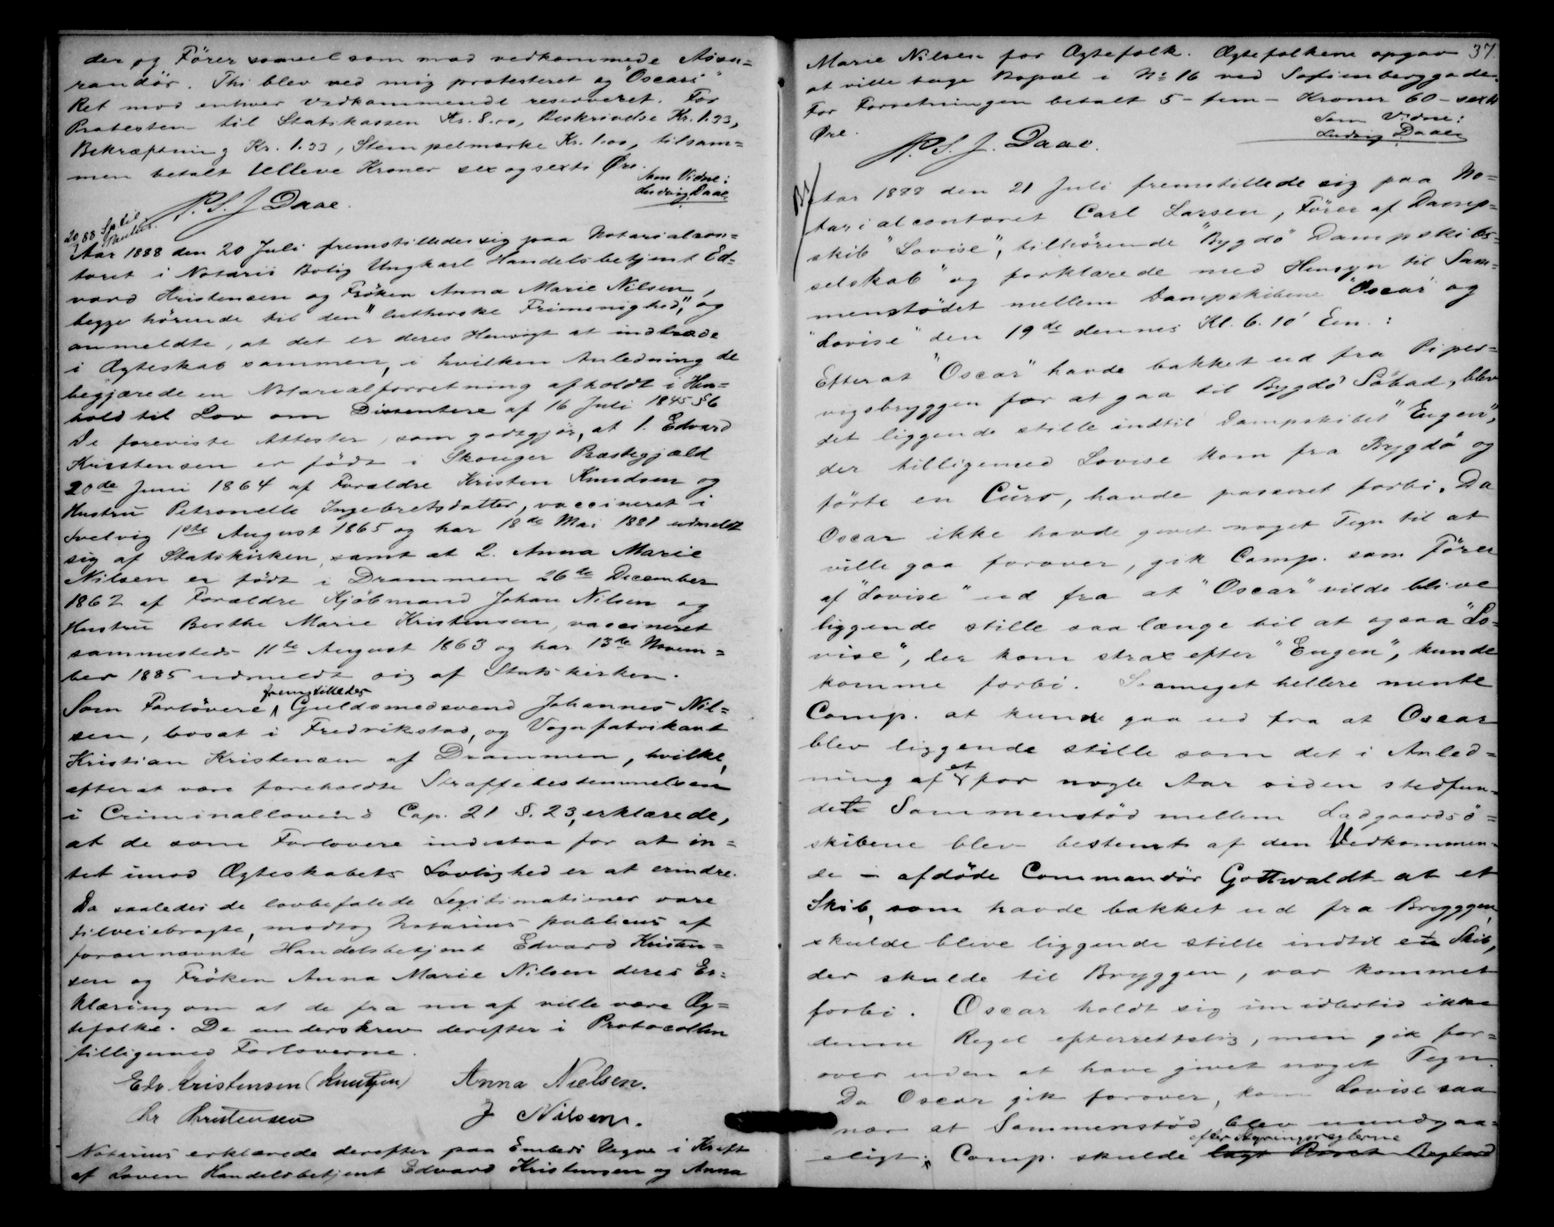 der og Fører saavel som mod vedkommede Assu=
randør. Thi blev ved mig protesteret og "Oscars"
Ret mod enhver Vedkommende reserveret. For
Protesten til Statskassen Kr. 8.00, Beskrivelse Kr. 1.33,
Bekræftning Kr. 1.33, Stempelmærke Kr. 1.00, tilsam=
men betalt Elleve Kroner sex og sexti Øre.
Som Vidne:
Ludvig Daae
P.S.J. Daae.
Aar 1888 den 20 Juli fremstillede sig paa Notarialcon=
toret i Notarii Bolig Ungkarl Handelsbetjent Ed=
vard Kristensen og Frøken Anna Marie Nilsen,
begge hørende til den "lutherske Frimenighed", og
anmeldte, at det er deres Hensigt at indtræde
i Ægteskab sammen, i hvilken Anledning de
begjærede en Notarialforretning afholdt i Hen=
hold til Lov om Dissentere af 16 Juli 1845 § 6
De foreviste Attester, som godtgjør, at 1. Edvard
Kristensen er født i Skouger Præstegjæld
20de Juni 1864 af Forældre Kristen Knudsen og
Hustru Petronelle Ingebretsdatter, vaccineret i
Svelvig 1ste August 1865 og har 18de Mai 1888 udmeldt
sig af Statskirken, samt at 2. Anna Marie
Nilsen er født i Drammen 26de December
1862 af Forældre Kjøbmand Johan Nilsen og
Hustru Berthe Marie Kristensen, vaccineret
sammesteds 11te August 1863 og har 13de Novem=
ber 1885 udmeldt sig af Statskirken.
Som Forlovere fremstilledes Guldsmedsvend Johannes Nil=
sen, bosat i Fredrikstad, og Vognfabrikant
Kristian Kristensen af Drammen, hvilke,
efterat være foreholdte Straffebestemmelsen
i Criminallovens Cap. 21 §. 23, erklærede,
at de som Forlovere indestaa for at in=
tet imod Ægteskabets Lovlighed er at erindre.
Da saaledes de lovbefalede Legitimationer vare
tilveiebragte, modtog Notarius publicus af
forannævnte Handelsbetjent Edvard Kristen=
sen og Frøken Anna Marie Nilsen deres Er=
klæring om at de fra nu af ville være Æg=
tefolke. De underskrev derefter i Protocollen
tilligemed Forloverne.
Edv Kristensen (Knutzen) Anna Nielsen.
Chr Christensen J Nilsen.
Notarius erklærede derefter paa Embeds Vegne i Kraft
af Loven Handelsbetjent Edvard Kristensen og Anna
37
Marie Nilsen for Ægtefolk. Ægtefolkene opgav
at ville tage Bopæl i No 16 ved Sofienberggaden.
For Forretningen betalt 5 – fem – Kroner 60 – sexti
Øre.
Som Vidne:
Ludvig Daae
P.S.J. Daae.
Aar 1888 den 21 Juli fremstillede sig paa No=
tarialcontoret Carl Larsen, Fører af Damp=
skib "Lovise", tilhørende "Bygdø Dampskibs=
selskab" og forklarede med Hensyn til Sam=
menstødet mellem Dampskibene "Oscar" og
"Lovise" den 19de dennes Kl. 6.10' Em.:
Efterat "Oscar" havde bakket ud fra Piper=
vigsbryggen for at gaa til Bygdø Søbad, blev
det liggende stille indtil Dampskibet "Eugen",
der tilligemed Lovise kom fra Bygdø og
førte en Curs, havde passeret forbi. Da
Oscar ikke havde givet noget Tegn til at
ville gaa forover, gik Comp. som Fører
af "Lovise" ud fra at "Oscar" vilde blive
liggende stille saa længe til at ogsaa "Lo=
vise", der kom strax efter "Eugen", kunde
komme forbi. Saameget hellere mente
Comp. at kunde gaa ud fra at Oscar
blev liggende stille som det i Anled=
ning af et for nogle Aar siden stedfun=
det Sammenstød mellem Ladgaardsø=
skibene blev bestemt af den Vedkommen=
de – afdøde Commandør Gottwaldt at et
Skib, som havde bakket ud fra Bryggen,
skulde blive liggende stille indtil ete Skib,
der skulde til Bryggen, var kommet
forbi. Oscar holdt sig imidlertid ikke
denne Regel efterrettelig, men gik for=
over uden at have givet noget Tegn.
Da Oscar gik forover, kom Lovise saa
nær at Sammenstød blev uundgaa=
eligt; Comp. skulde efter Styringsreglerne